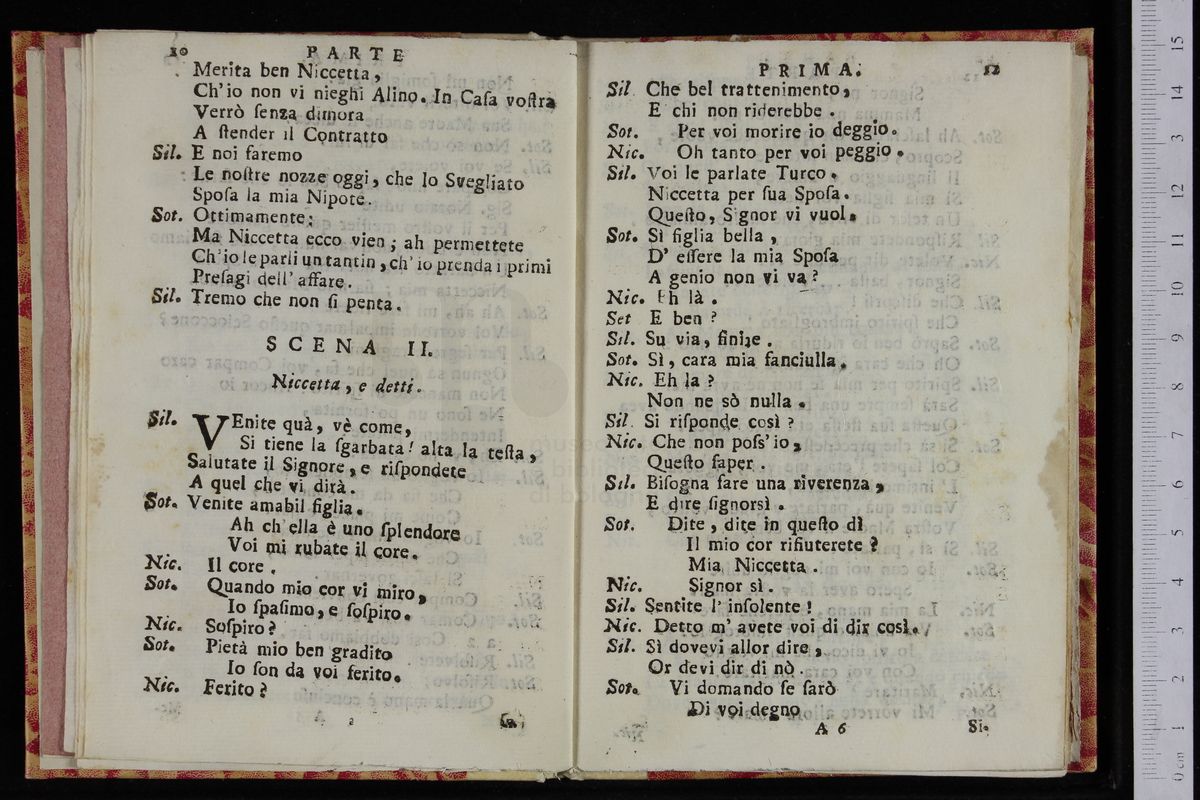 10 PARTE
Merita ben Niccetta,
Ch'io non vi nieghi Alino. In Caſa voſtra
Verrò ſenza dimora
A ſtender il Contratto
Sil. E noi faremo
Le noſtre nozze oggi, che lo Svegliato
Spoſa la mia Nipote.
Sot. Ottimamente;
Ma Niccetta ecco vien; ah permettete
Ch'io le parli un tantin, ch'io prenda i primi
Preſagi dell'affare.
Sil. Tremo che non ſi penta.
SCENA II.
Niccetta, e detti.
Sil. VEnite quà, vè come,
Si tiene la ſgarbata! alta la teſta,
Salutate il Signore, e riſpondete
A quel che vi dirà.
Sot. Venite amabil figlia.
Ah ch'ella è uno ſplendore
Voi mi rubate il core.
Nic. Il core.
Sot. Quando mio cor vi miro,
Io ſpaſimo, e ſoſpiro.
Nic. Soſpiro?
Sot. Pietà mio ben gradito
Io ſon da voi ferito.
Nic. Ferito?
PRIMA. 11
Sil. Che bel trattenimento,
E chi non riderebbe.
Sot. Per voi morire io deggio.
Nic. Oh tanto per voi peggio.
Sil. Voi le parlate Turco.
Niccetta per ſua Spoſa.
Queſto, Signor vi vuol.
Sot. Sì figlia bella,
D' eſſere la mia Spoſa
A genio non vi va?
Nic. Eh là.
Set E ben?
Sil. Su via, finije.
Sot. Sì, cara mia fanciulla.
Nic. Eh la?
Non ne sò nulla.
Sil. Si riſponde così?
Nic. Che non poſs'io,
Queſto ſaper.
Sil. Biſogna fare una riverenza,
E dire ſignorsì.
Sot. Dite, dite in queſto dì
Il mio cor rifiuterete?
Mia Niccetta.
Nic. Signor sì.
Sil. Sentite l' inſolente!
Nic. Detto m' avete voi di dir così.
Sil. Sì dovevi allor dire,
Or devi dir di nò.
Sot. Vi domando ſe ſarò
Di voi degno
A 6 Si.